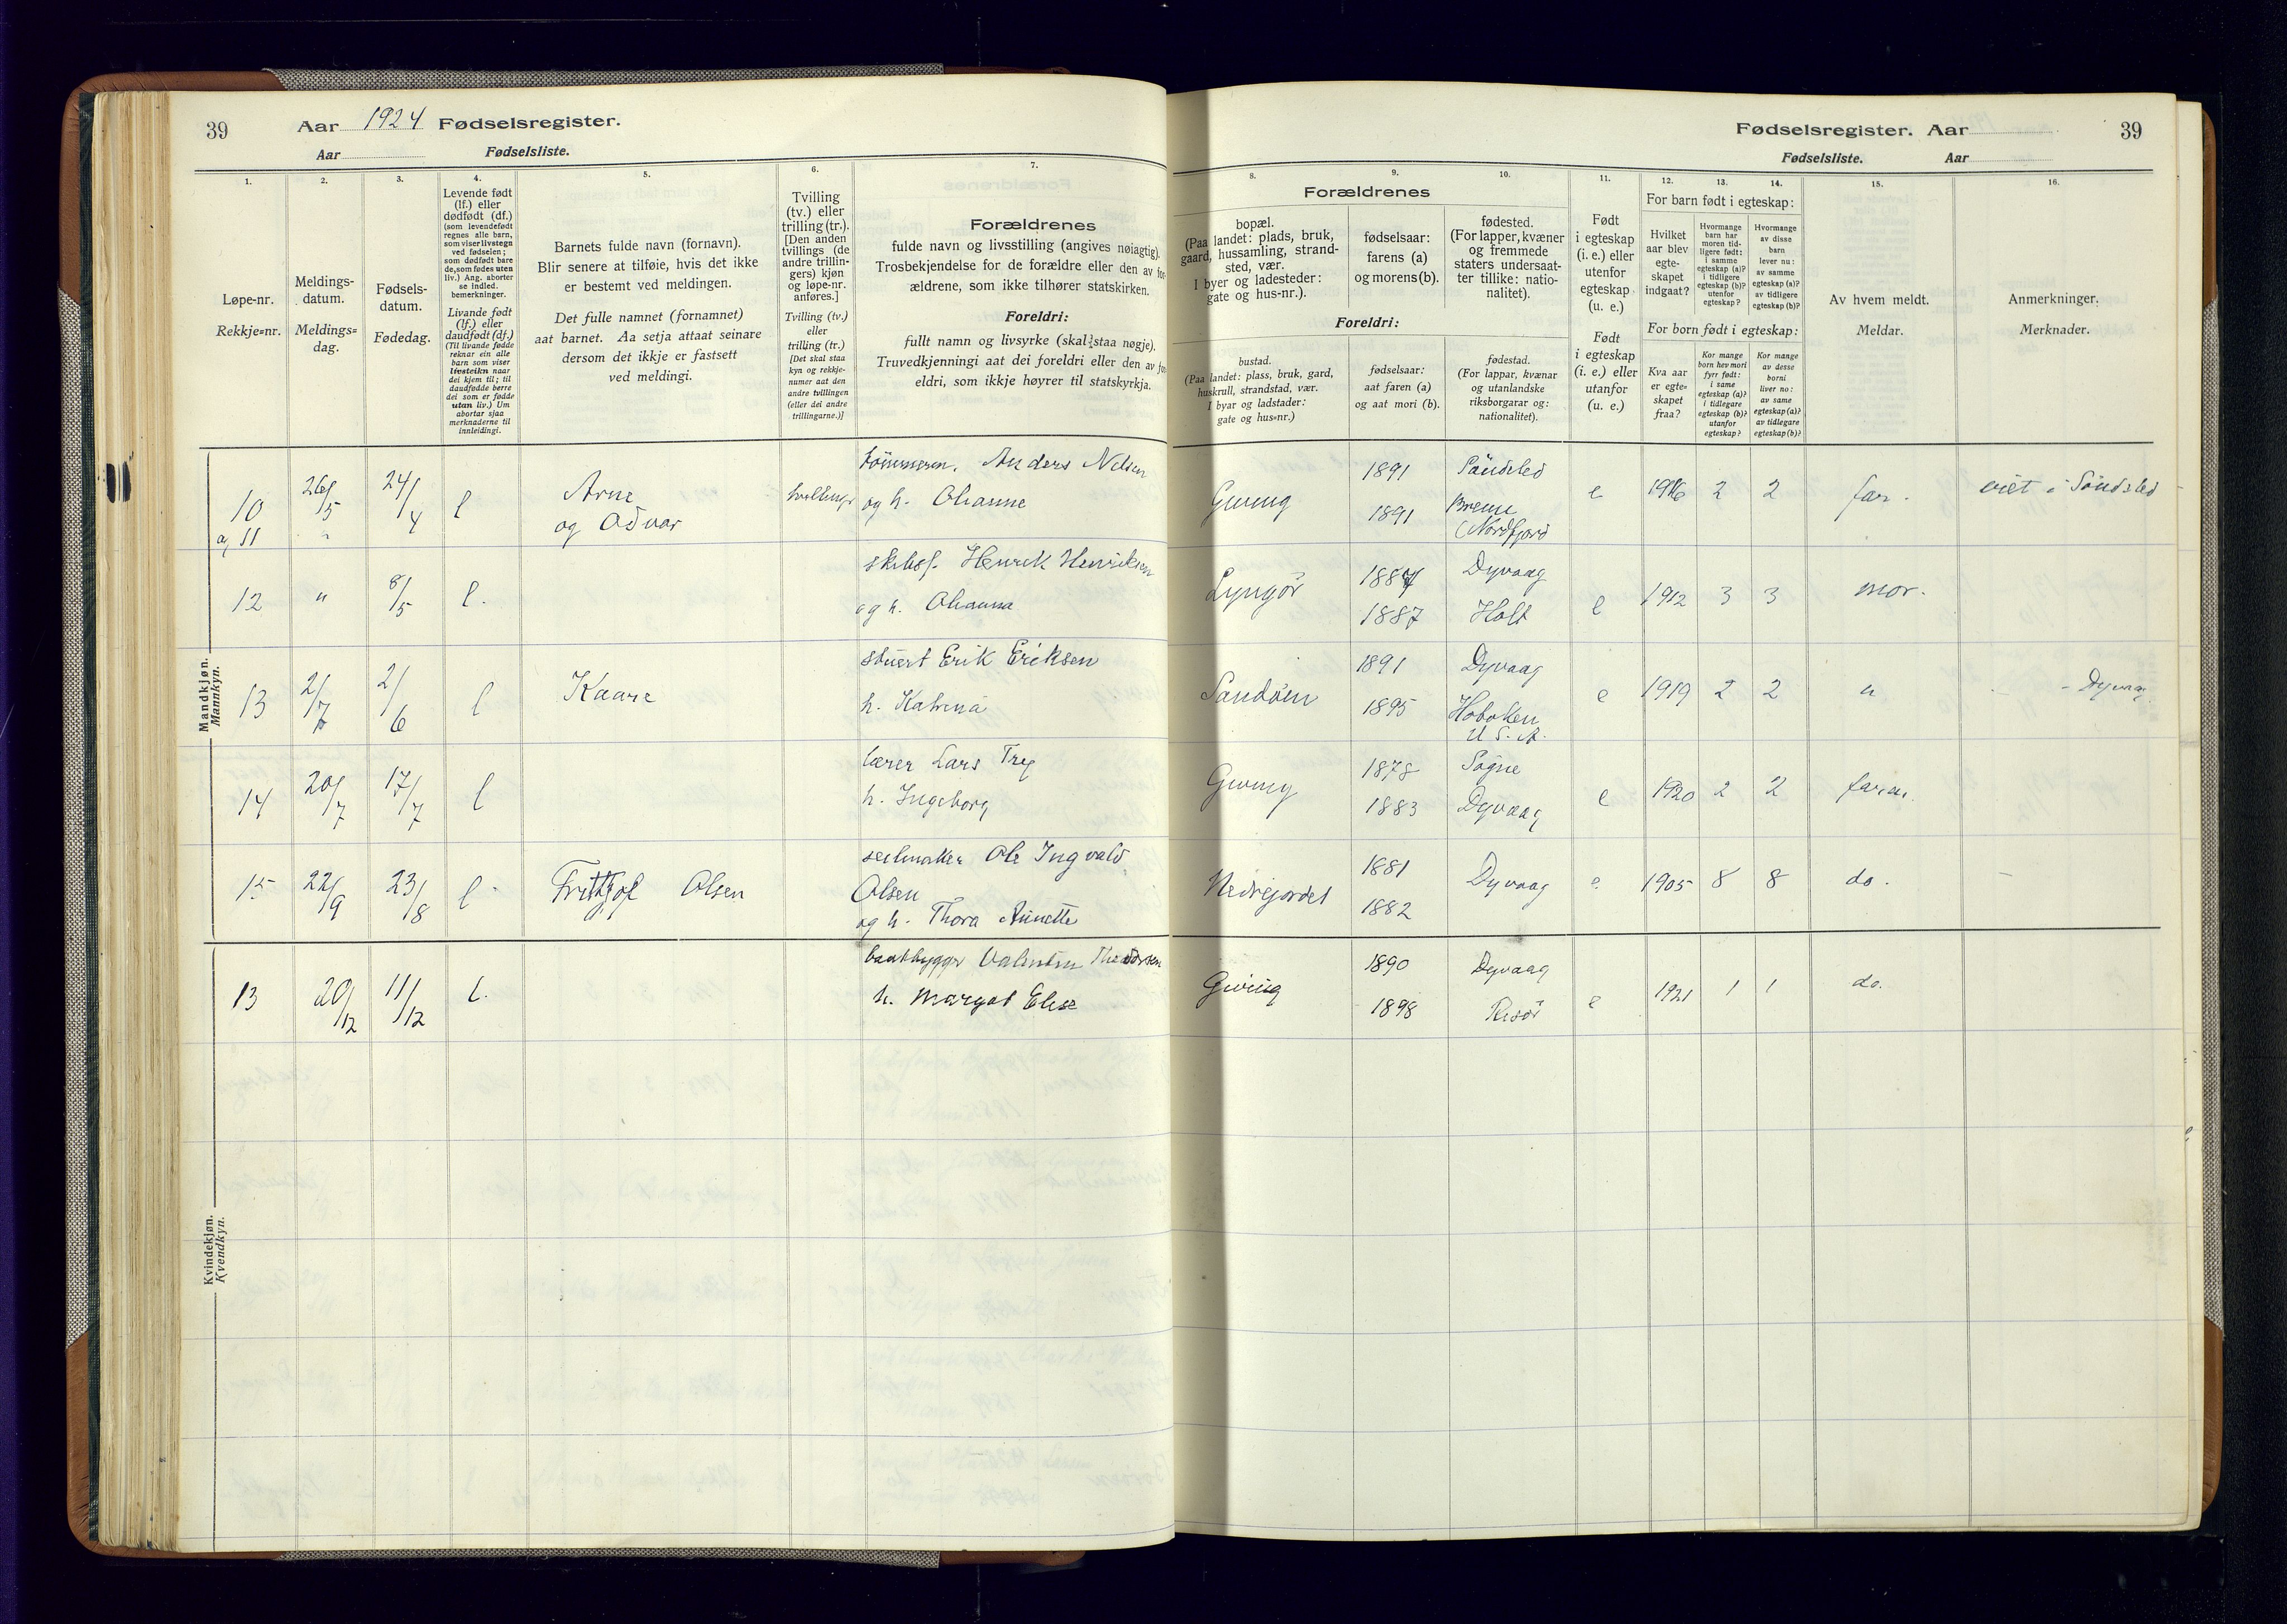 39
Aar 1924 Fødselsregister.
Aar Fødselsliste.
1.
2.
3.
4.
5.
6.
7.
Løpe-nr.
Rekkje=nr.
Meldings-
datum.
Meldings=
dag.
Fødsels-
datum.
Fødedag.
Levende født
(lf.) eller
dødfødt (df.)
(som levendefødt
regnes alle barn,
som viser livstegn
ved fødselen;
som dødfødt bare
de, som fødes uten
liv.) Ang. aborter
se indled.
bemerkninger.
Livande født
(lf.) eller
daudfødt (df.)
(Til livande fødde
reknar ein alle
barn som viser
livsteikn naar
dei kjem til; til
daudfødde berre
dei som er fødde
utan liv.) Um
abortar sjaa
merknaderne til
innleidingi.
Barnets fulde navn (fornavn).
Blir senere at tilføie, hvis det ikke
er bestemt ved meldingen.
Det fulle namnet (fornamnet)
aat barnet. Aa setja attaat seinare
dersom det ikkje er fastsett
ved meldingi.
Tvilling
(tv.) eller
trilling (tr.).
[Den anden
tvillings (de
andre trillin-
gers) kjøn
og løpe-nr.
anføres.]
Tvilling (tv.)
eller
trilling (tr.)
[Det skal staa
kyn og rekkje-
numer aat den
andre tvillingen
(eller dei andre
trillingarne.)]
Forældrenes
fulde navn og livsstilling (angives nøiagtig).
Trosbekjendelse for de forældre eller den av for-
ældrene, som ikke tilhører statskirken.
Foreldri:
fullt namn og livsyrke (skal staa nøgje).
Truvedkjenningi aat dei foreldri eller den av
eldri, som ikkje høyrer til statskyrkja.
Mandkjøn.
Mannkyn.
10
og 11
26/5
"
24/4
l
Arne
og Odvar
tvillinger
Anders Nilsen
og h. Ohanne
12
"
8/5
l.
skibsf. Henrik Henriksen
og h. Ohanna
13
2/7
2/6
l
Kaare
stuert Erik Eriksen
h. Katrina
14
20/7
17/7
l
lærer Lars Try
h. Ingeborg
15
22/9
23/8
l
Frithjof Olsen
seilmaker Ole Ingvald
Olsen
og h. Thora Annette
Kvindekjøn.
Kvendkyn.
13
20/12
11/12
l.
baatbygger Valentin Theodorsen
h. Margot Elise
Fødselsregister. Aar
39
Fødselsliste. Aar
8.
9.
10.
11.
12.
13.
14.
15.
16.
Forældrenes
bopæl.
(Paa landet: plads, bruk,
gaard, hussamling, strand-
sted, vær.
I byer og ladesteder:
gate og hus-nr.).
fødselsaar:
farens (a)
og morens (b).
fødested.
(For lapper, kvæner
og fremmede
staters undersaat-
ter tillike: natio-
nalitet).
Foreldri:
bustad.
(Paa landet: plass, bruk, gard,
huskrull, strandstad, vær.
I byar og ladstader:
gate og hus=nr.)
fødselsaar:
aat faren (a)
og aat mori (b).
fødestad.
(For lappar, kvænar
og utanlandske
riksborgarar og:
nationalitet).
Født
i egteskap
(i. e.) eller
utenfor
egteskap
(u. e.)
Født
i egteskap
(i. e.) eller
utanfor
(u. e.)
For barn født i egteskap:
Hvilket
aar blev
egte-
skapet
indgaat?
Hvormange
barn har
moren tid-
ligere født:
i samme
egteskap (a)?
i tidligere
egteskap (b)?
utenfor
egteskap?
Hvormange
av disse
barn
lever nu:
av samme
egteskap (a)?
av tidligere
egteskap (b)?
For born født i egteskap:
Kva aar
er egte=
skapet
fraa?
Kor mange
born hev mori
fyrr født:
i same
egteskap (a)?
i tidlegare
egteskap (b)?
utanfor
egteskap?
Kor mange
av desse
borni
liver no:
av same
egteskap (a)?
av tidlegare
egteskap (b)?
Av hvem meldt.
Meldar.
Anmerkninger.
Merknader.
Gjeving
1891
1891
Söndeled
Bremn
(Nordfjord
e
1916
2
2
far.
viet i Söndeled
Lyngör
1887
1887
Dyvaag
Holt
e
1912
3
3
mor.
Sandöen
1891
1895
Dyvaag
Hoboken
U. S. A.
e
1919
2
2
"
- Dyvaag
Gjeving
1878
1883
Søgne
Dyvaag
e
1920
2
2
faren.
Nedregjordet
1881
1882
Dyvaag
e.
1905
8
8
do.
-
Gjeving
1890
1898
Dyvaag
Risör
e
1921
1
1
do.